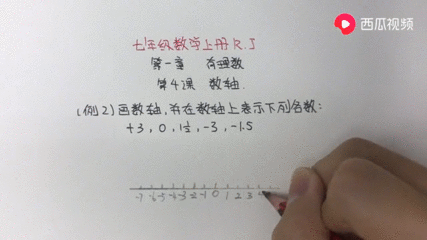 西瓜视频
七年级数学上册R.J
第一章 有理数
第4课 数轴.
(例2)画数轴,并在数轴上表示下列各数:
+3, 0, 1½, -3, -1.5
-7 -6 -5 -4 -3 -2 -1 0 1 2 3